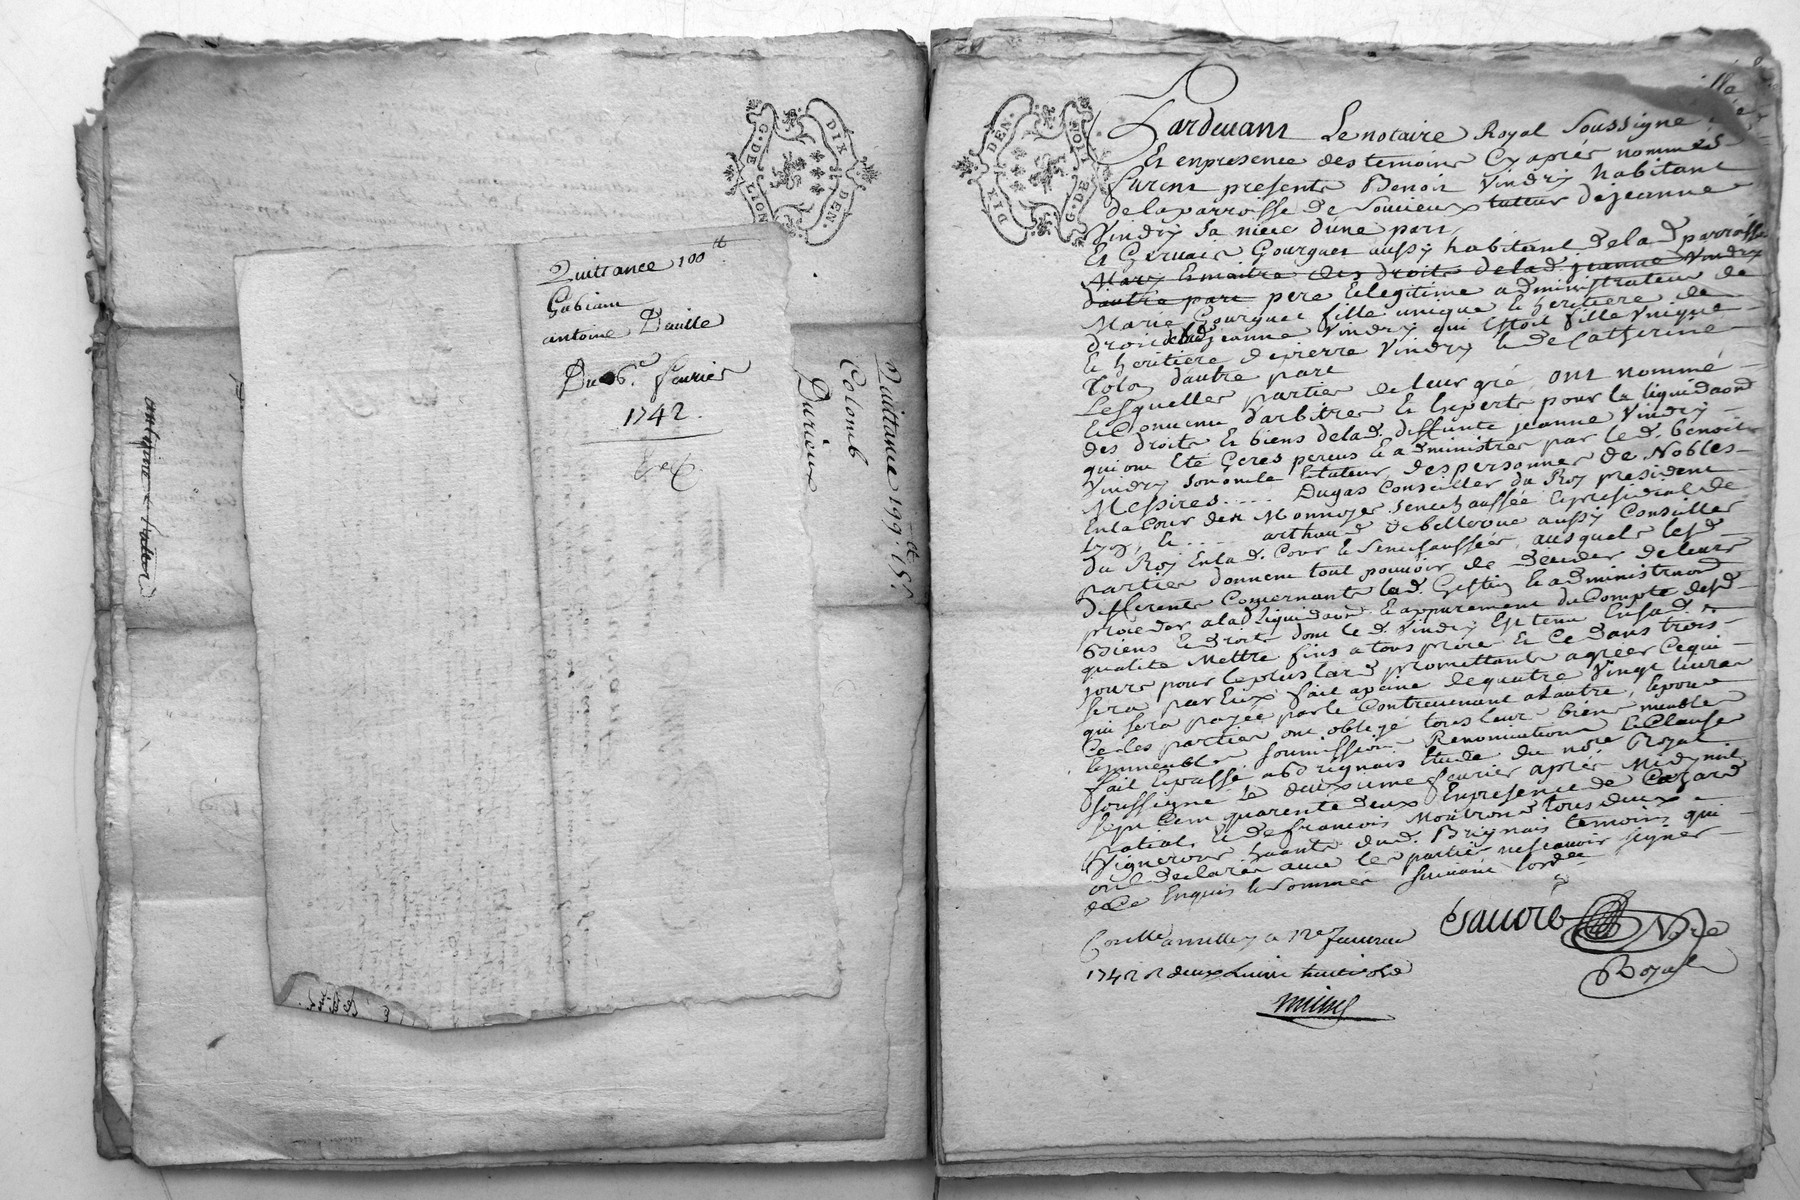 G. DE LION
DIX DEN.
Quittance 100 tt
Gabiam
antoine Daille
Du 6e. fevrier
1742.
Quittance 199 tt 15 s
Colomb
Durieux
antoine
DIX DEN.
G. DE LION
Pardevant Le notaire Royal soussigné
Et en presence des temoins Cy aprés nommés
Furent presents Benoit Vindry habitant
de la parroisse de Soucieux tutteur de jeanne
Vindry sa niece d'une part,
Et Gervais Gourguet aussy habitant de lad parroisse
Mary Et maitre des droits de lad. jeanne Vindry
d'autre part pere Et legitime administrateur de
Marie Gourguet fille unique Et heritiere de
droit de lad jeanne Vindry qui Estoit fille Unique
Et heritiere de pierre Vindry Et de Catherine
d'autre part
Lesquelles parties de leur gré, ont nommé
Et Convenu d'arbitres Et Experts pour la liquidaon
des droits Et biens de lad. deffunte jeanne Vindry
qui ont Eté Gerés perçus Et administrés par led. benoit
Vindry son oncle Et tuteur, des personnes de Nobles
Messires .... Dugas Conseiller du Roy president
En la Cour des Monnoyes senechaussée Et presidial de
Lyon, Et .... arthaud de bellevue aussy Conseiller
du Roy En lad. Cour Et Senechaussée, ausquels lesd
parties donnent tout pouvoir de decider de leurs
differents Concernants lad. Gestion Et administraon
proceder a lad liquidaon Et appurement du Compte desd
biens Et droits dont led. Vindry Est tenu En sad.
qualité Mettre fins a tous procés Et Ce dans trois
jours pour le plus tard promettants agreer Ce qui
sera par Eux fait a peine de quatre Vingt livres
qui sera payée par le Contrevenant a l'autre, Et pour
Ce les parties ont obligé tous leurs biens meubles
Et immeubles, soumissions Renonciations Et Clauses
fait Et passé a Brignais Etude du nore Royal
soussigné Le deuxieme fevrier aprés Midy mil
sept Cent quarente deux En presence de Cezard
Et de francois Moutrond tous deux
Vignerons habitants dud. Brignais temoins qui
ont declarés avec les parties ne scavoir signer
de Ce Enquis Et sommés suivant l'ordce
Nore
Royal
Conllé a milley a 12e fevrier
1742 R deux livres huit sols